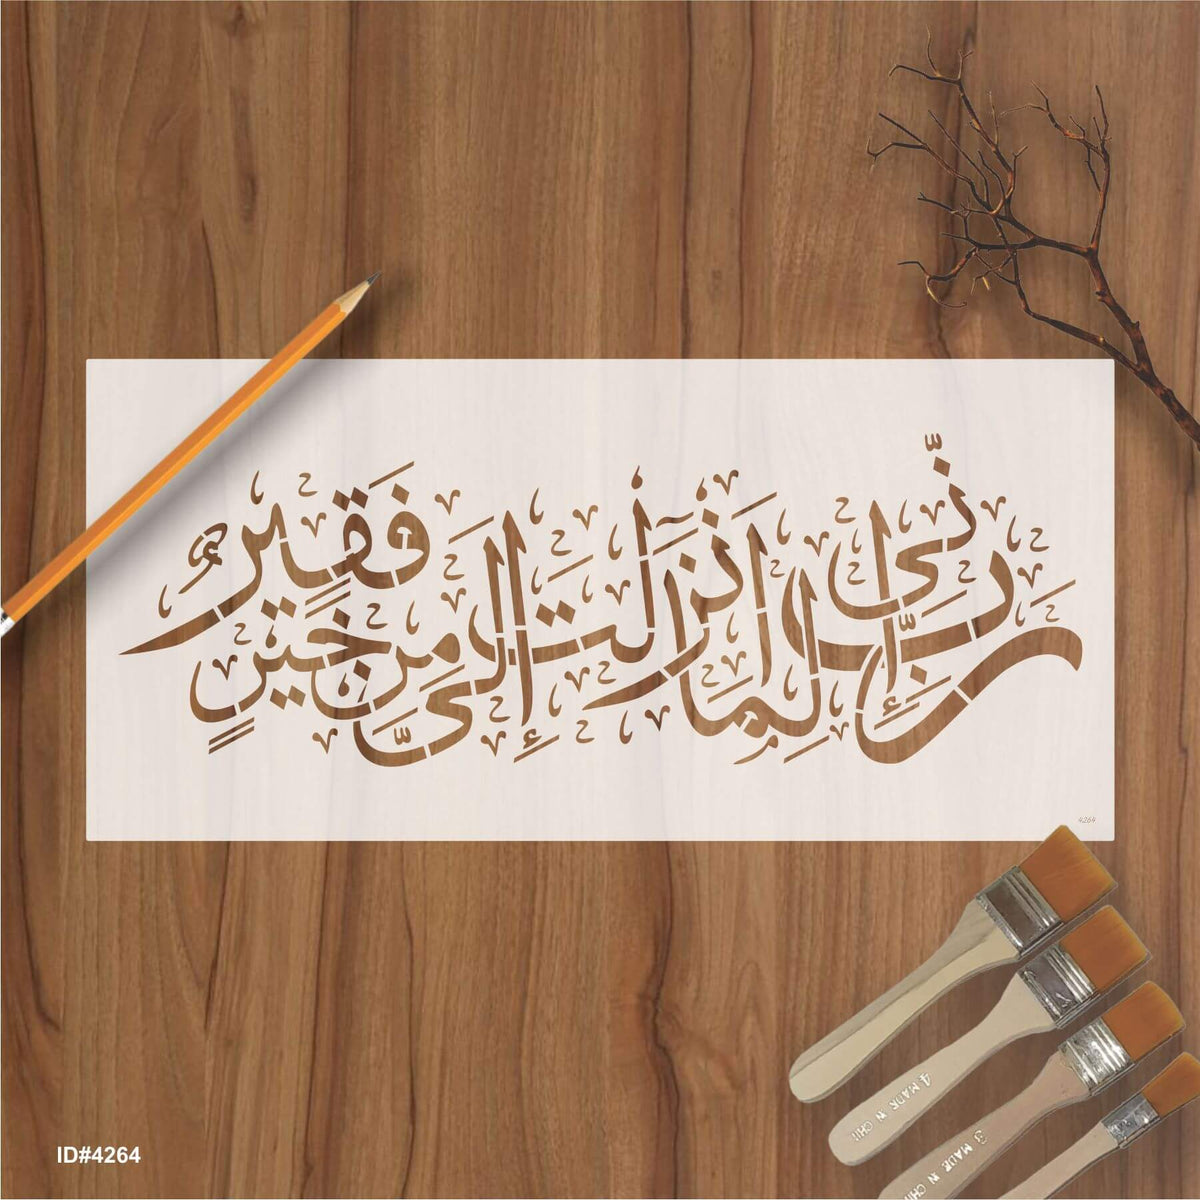 رَبِّ إِنِّي لِمَا أَنْزَلْتَ إِلَيَّ مِنْ خَيْرٍ فَقِيرٌ
4264
ID#4264
4 MADE IN CHI
3 MADE IN CHI